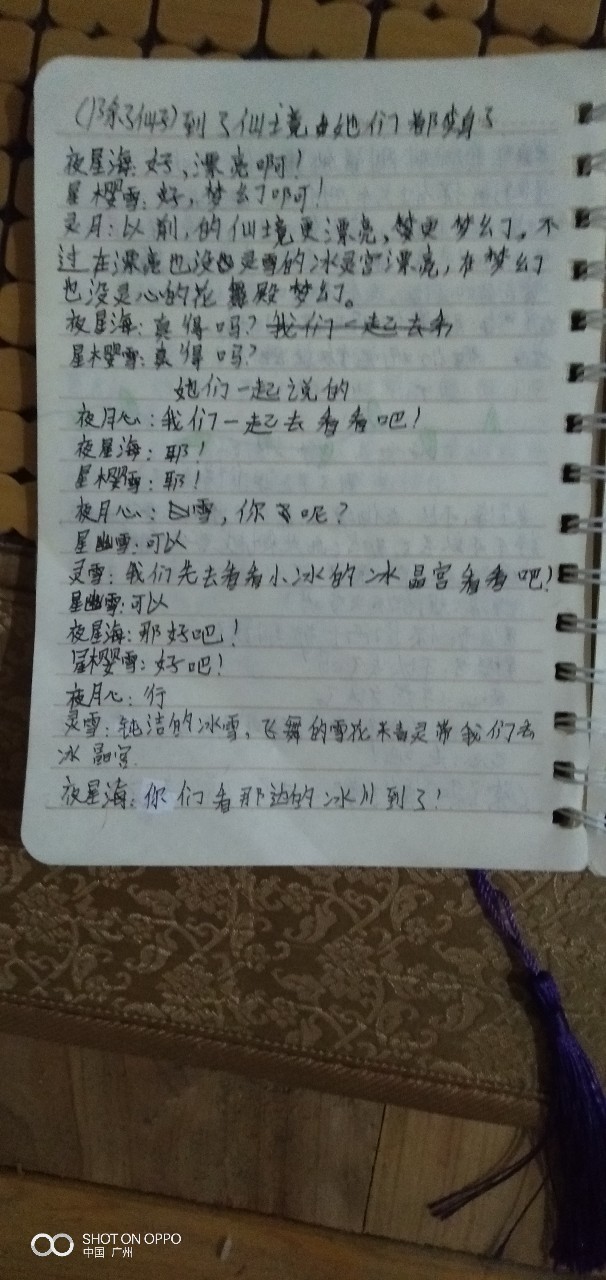 (除了仙子)到了仙境她们都变身了
夜星海:好,漂亮啊!
星樱雪:好,梦幻啊!
灵月:以前,的仙境更漂亮,更梦幻。不
过在漂亮也没灵雪的冰灵宫漂亮,在梦幻
也没灵心的花舞殿梦幻。
夜星海:真得吗?我们一起去看
星樱雪:真得吗?
她们一起说的
夜月心:我们一起去看看吧!
夜星海:耶!
星樱雪:耶!
夜月心:雪,你呢?
星幽雪:可以
灵雪:我们先去看看小冰的冰晶宫看看吧!
星幽雪:可以
夜星海:那好吧!
星樱雪:好吧!
夜月心:行
灵雪:纯洁的冰雪,飞舞的雪花灵带我们去
冰晶宫
夜星海:你们看那边的冰川到了!
SHOT ON OPPO
中国 广州